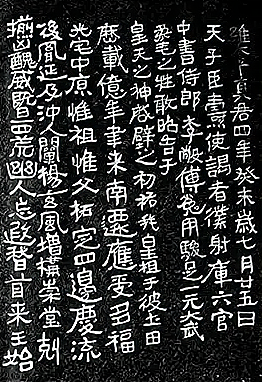 維太平真君四年癸未歲七月廿五日
天子臣燾使謁者僕射庫六官
中書侍郎李敞傅㝹用駿足一元大武
柔毛之牲敢昭告于
皇天之神啟辟之初祐我皇祖于彼土田
歷載億年聿來南遷應受多福
光宅中原惟祖惟父拓定四邊慶流
後胤延及沖人闡揚玄風增構崇堂剋
揃凶醜威暨四荒幽人忘遐稽首來王始